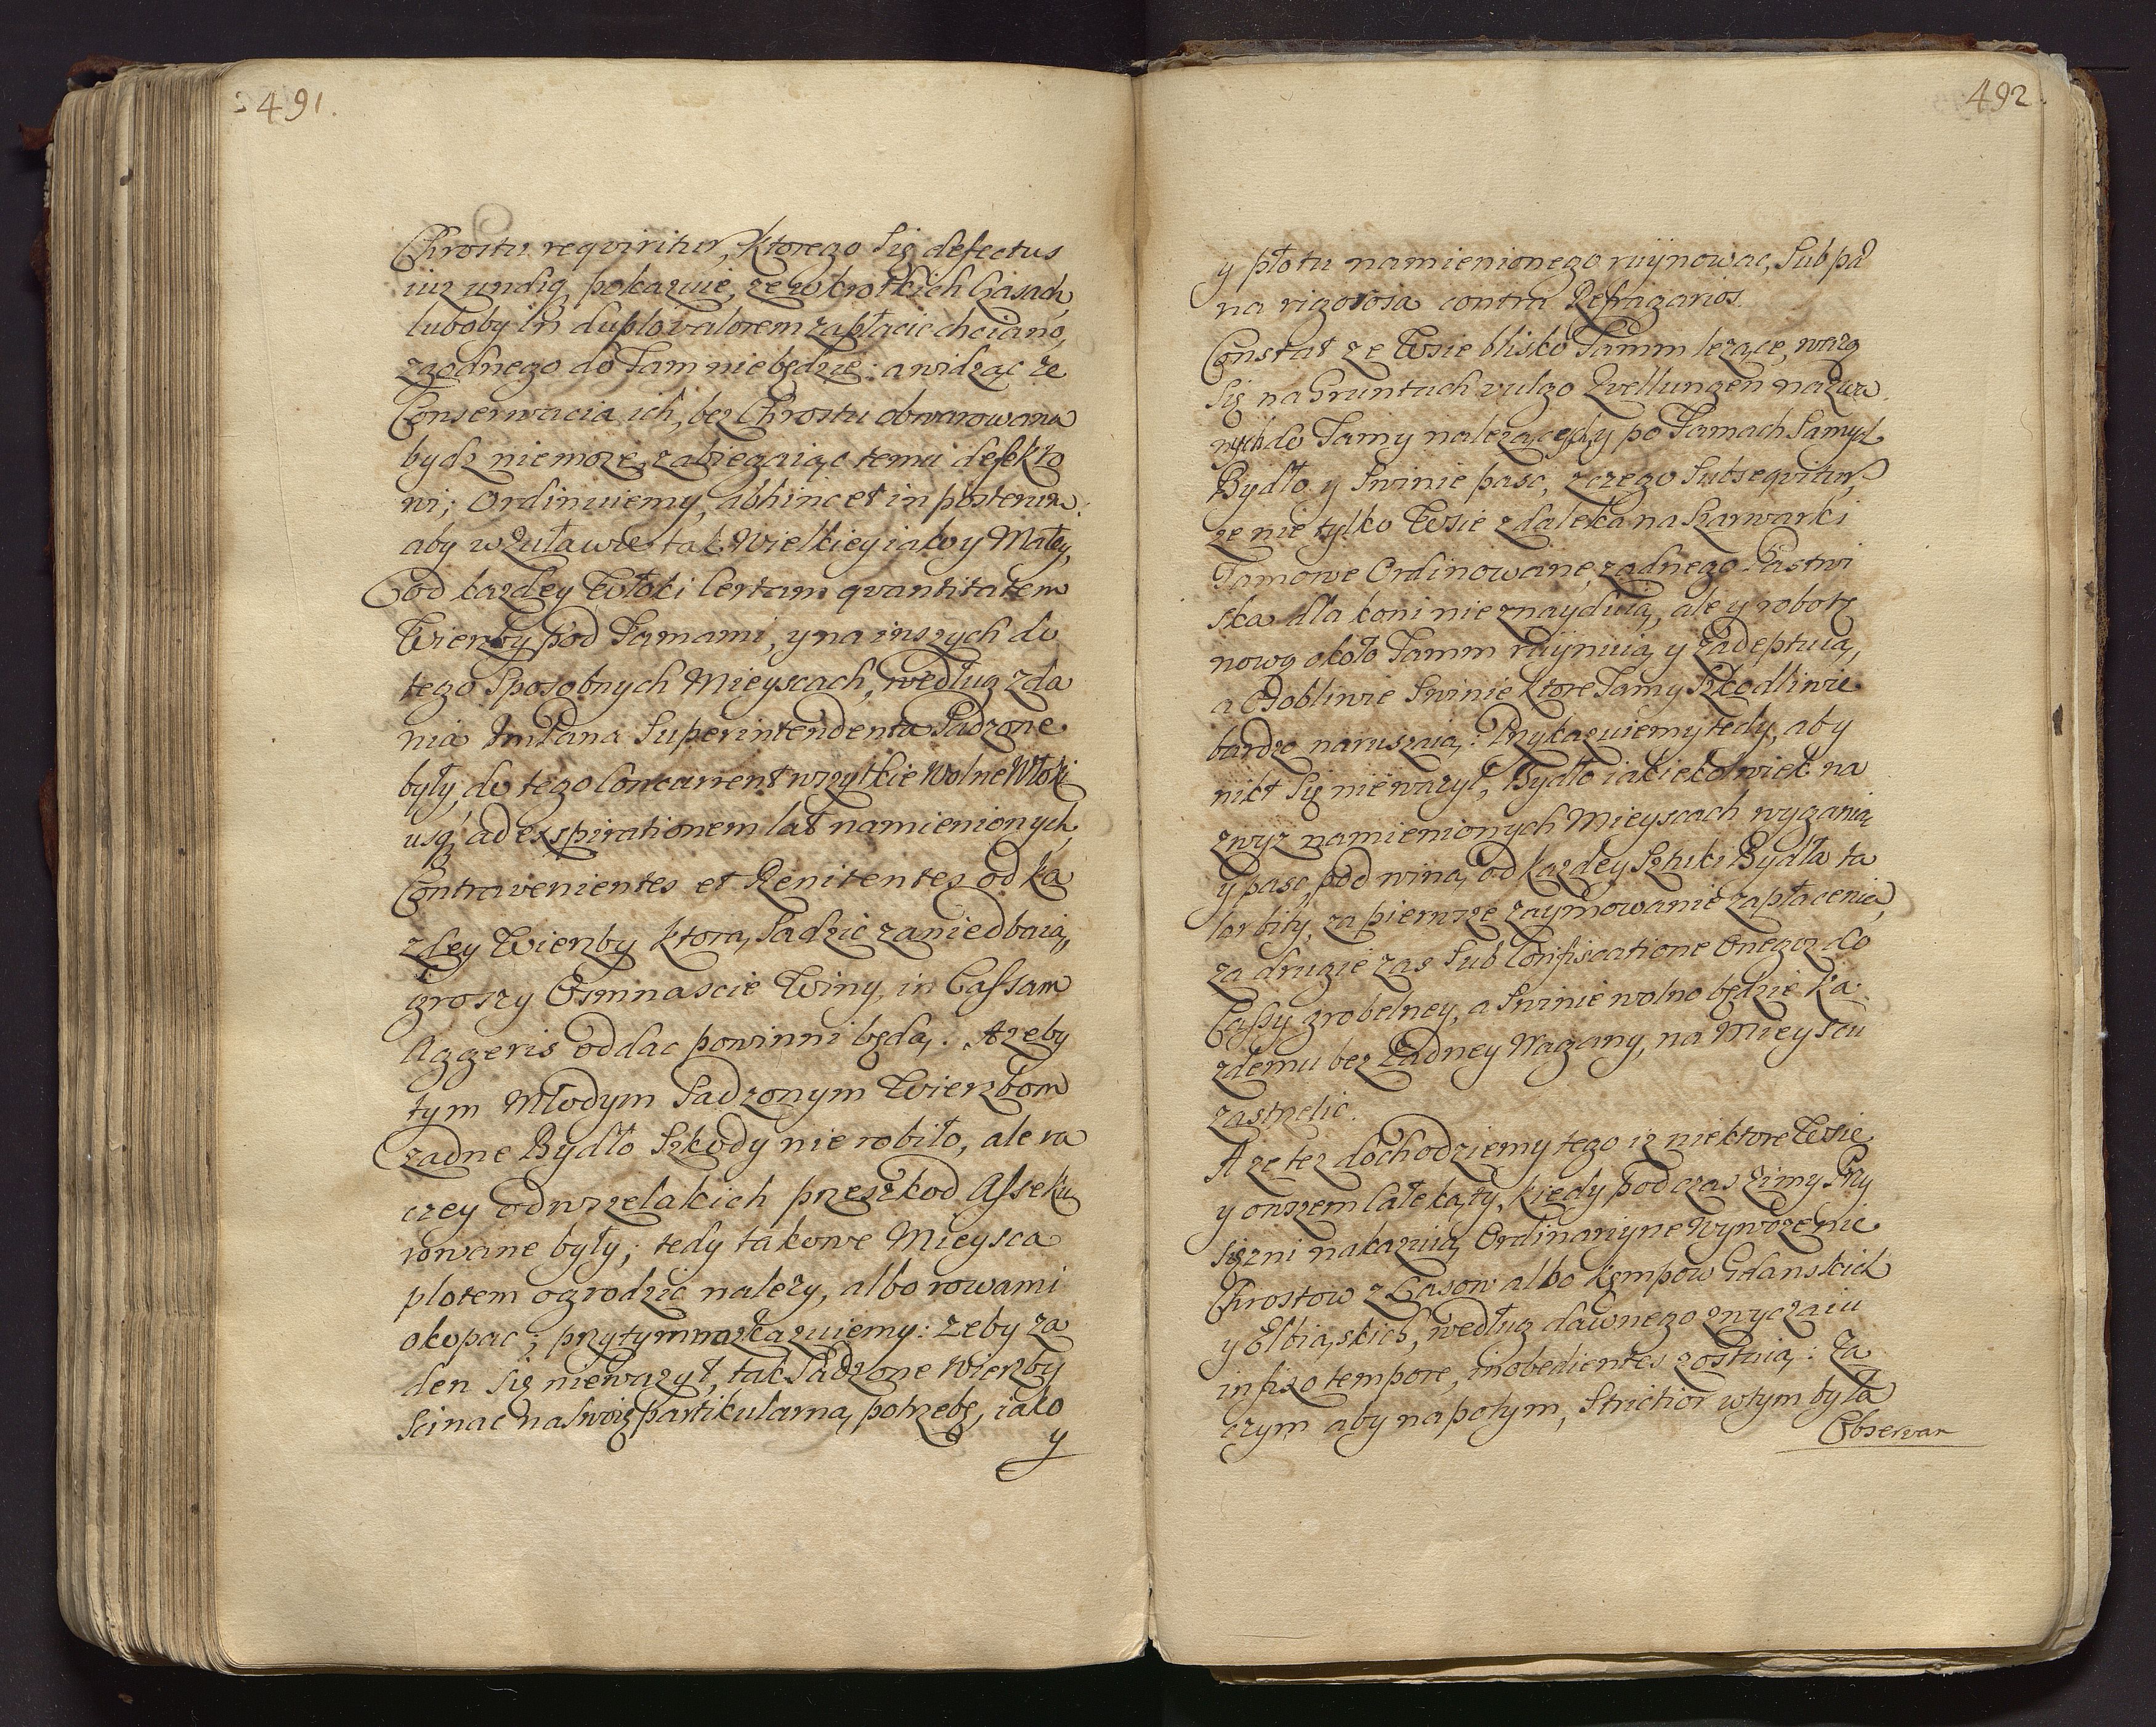 491.
Chrostu reqviritur, ktorego się defectus
iuz undiq pokazuie, ze w krotkich Czasach,
luboby in duplo valorem zapłacic chciano,
zgodnego do Tam nie będzie: a widząc ze
Conserwacia ich, bez Chrostu obwarowana
bydz nie moze, zabiegaiąc temu defekto
wi; Ordinuiemy, abhinc et in posterum.
aby w Zuławie tak Wielkiey iako y Małey,
od kazdey Włoki Certam qvantitatem
Wierzby pod Tamami, y na inszych do
tego Sposobnych Mieyscach, według zda
nia ImPana Superintendenta Sadzone
były, do tego Concurrent wszytkie Wolne Włoki
usq ad exspirationem lat namienionych,
Contravenientes et Renitentes od ka
zdey Wierzby ktorą Sadzic zaniedbaią,
groszy Osmnascie Winy, in Cassam
Aggeris oddac powinni będą. A zeby
tym Młodym Sadzonym Wierzbom
zadne Bydło Szkody nie robiło, ale ra
czey od wszelakich przeszkod Asseku
rowane były; tedy takowe Mieysca
plotem ogrodzic nalezy, albo rowami
okopac; przytym nakazuiemy: zeby za
den się niewazył, tak Sadzone Wierzby
Scinac na Swoię partikularną potrzebę, iako
y
492.
y płotu namienionego ruijnowac, Sub pœ
na rigorosa contra Refragarios.
Constat ze Wsie blisko Tamm lezące, wazą
Się na Gruntach vulgo Qvellungen nazwa
nych do Tamy nalezących, y po Tamach Samych
Bydło y Swinie pasc, z czego Subsequitur,
ze nie tylko Wsie zdaleka na Szarwarki
Tamowe Ordinowane, zadnego Pastwi
ska dla koni nie znayduią, ale y robotę
nową około Tamm ruijnuią y zadeptuią,
a Osobliwie Swinie ktore Tamy Szkodliwie
bardzo naruszaią: Przykazuiemy tedy, aby
nikt Się nie wazył, Bydło iakiekolwiek na
zwyz namienionych Mieyscach wyganiac
y pasc, pod winą od kazdey Sztuki Bydła ta
lar bity, za pierwsze zaymowanie zapłacenia,
za drugie zas Sub Confiscatione Onegoz do
Cassy grobelney, a Swinie wolno będzie ka
zdemu bez Zadney Nagany, na Mieyscu
zastrzelic.
A ze tez dochodziemy tego iz niektore Wsie
y owszem Całe kąty, kiedy pod czas Zimy Przy
sięzni nakazuią Ordinaryine Wywozenie
Chrostow z Lasow albo kęmpow Gdanskich
y Elbiąskich, według dawnego zwyczaiu
in fixo tempore, inobedientes zostaią: Za
czym aby napotym, Strictior w tym była
Observan